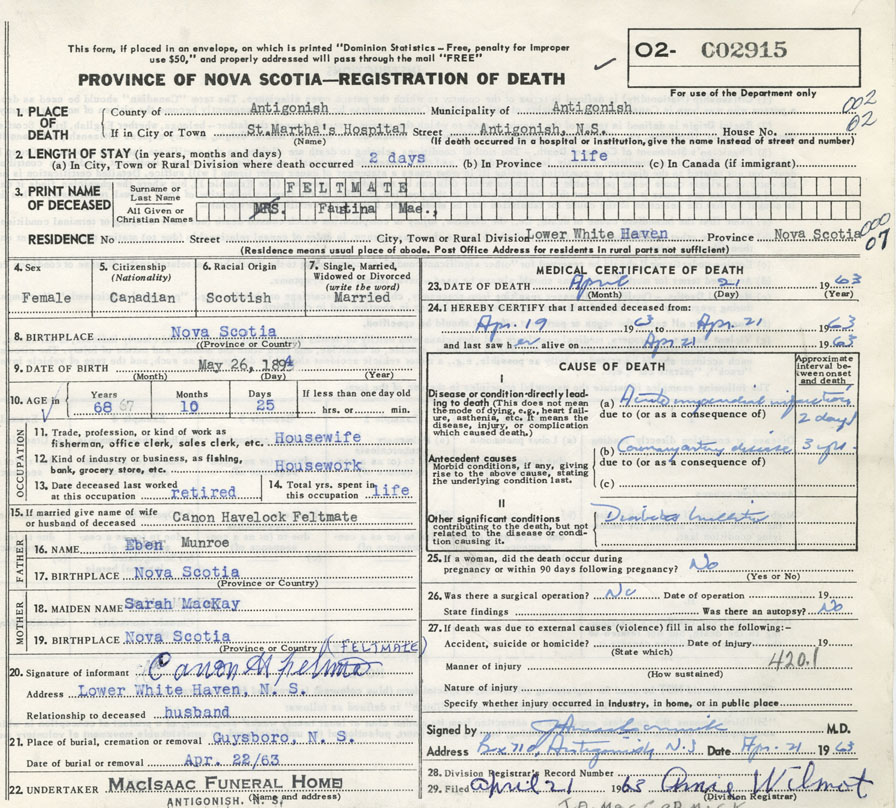 This form, if placed in an envelope, on which is printed "Dominion Statistics - Free, penalty for improper
use $50," and properly addressed will pass through the mail "FREE"
PROVINCE OF NOVA SCOTIA—REGISTRATION OF DEATH
O2- C02915
For use of the Department only
002
02
1. PLACE OF DEATH
County of Antigonish Municipality of Antigonish
If in City or Town St.Martha's Hospital Street Antigonish, N.S. House No.
(Name) (If death occurred in a hospital or institution, give the name instead of street and number)
2. LENGTH OF STAY (in years, months and days)
(a) In City, Town or Rural Division where death occurred 2 days (b) In Province life (c) In Canada (if immigrant)
3. PRINT NAME OF DECEASED
Surname or Last Name FELTMATE
All Given or Christian Names MRS. Faustina Mae.,
000
07
RESIDENCE No Street City, Town or Rural Division Lower White Haven Province Nova Scotia
(Residence means usual place of abode. Post Office Address for residents in rural parts not sufficient)
4. Sex Female
5. Citizenship (Nationality) Canadian
6. Racial Origin Scottish
7. Single, Married, Widowed or Divorced (write the word) Married
8. BIRTHPLACE Nova Scotia
(Province or Country)
9. DATE OF BIRTH May 26, 1894
(Month) (Day) (Year)
10. AGE in Years 68 67 Months 10 Days 25 If less than one day old hrs. or min.
OCCUPATION
11. Trade, profession, or kind of work as
fisherman, office clerk, sales clerk, etc. Housewife
12. Kind of industry or business, as fishing,
bank, grocery store, etc. Housework
13. Date deceased last worked at this occupation retired
14. Total yrs. spent in this occupation life
15. If married give name of wife
or husband of deceased Canon Havelock Feltmate
FATHER
16. NAME Eben Munroe
17. BIRTHPLACE Nova Scotia
(Province or Country)
MOTHER
18. MAIDEN NAME Sarah MacKay
19. BIRTHPLACE Nova Scotia
(Province or Country) (FELTMATE)
20. Signature of informant Canon H Feltmate
Address Lower White Haven, N. S.
Relationship to deceased husband
21. Place of burial, cremation or removal Guysboro, N. S.
Date of burial or removal Apr. 22/63
22. UNDERTAKER MACISAAC FUNERAL HOME
ANTIGONISH. N. S.
(Name and address)
MEDICAL CERTIFICATE OF DEATH
23. DATE OF DEATH April 21 1963
(Month) (Day) (Year)
24. I HEREBY CERTIFY that I attended deceased from:
Apr. 19 1963 to Apr. 21 1963
and last saw her alive on Apr 21 1963
CAUSE OF DEATH
Approximate interval between onset and death
I
Disease or condition directly leading to death (This does not mean
the mode of dying, e.g., heart failure, asthenia, etc. It means the
disease, injury, or complication
which caused death.)
(a) Acute myocardial infarction 2 days
due to (or as a consequence of)
Antecedent causes
Morbid conditions, if any, giving
rise to the above cause, stating
the underlying condition last.
(b) Coronary artery disease 3 yrs.
due to (or as a consequence of)
(c)
II
Other significant conditions
contributing to the death, but not
related to the disease or condition causing it.
Diabetes mellitus
25. If a woman, did the death occur during
pregnancy or within 90 days following pregnancy? No
(Yes or No)
26. Was there a surgical operation? No Date of operation 19
State findings Was there an autopsy? No
27. If death was due to external causes (violence) fill in also the following:-
Accident, suicide or homicide? Date of injury 19
(State which)
Manner of injury 420.1
(How sustained)
Nature of injury
Specify whether injury occurred in industry, in home, or in public place
Signed by M.D.
Address Box 710, Antigonish, N.S Date Apr. 21 1963
28. Division Registrar's Record Number
29. Filed April 21 1963 Annie Wilmot
(Division Registrar)